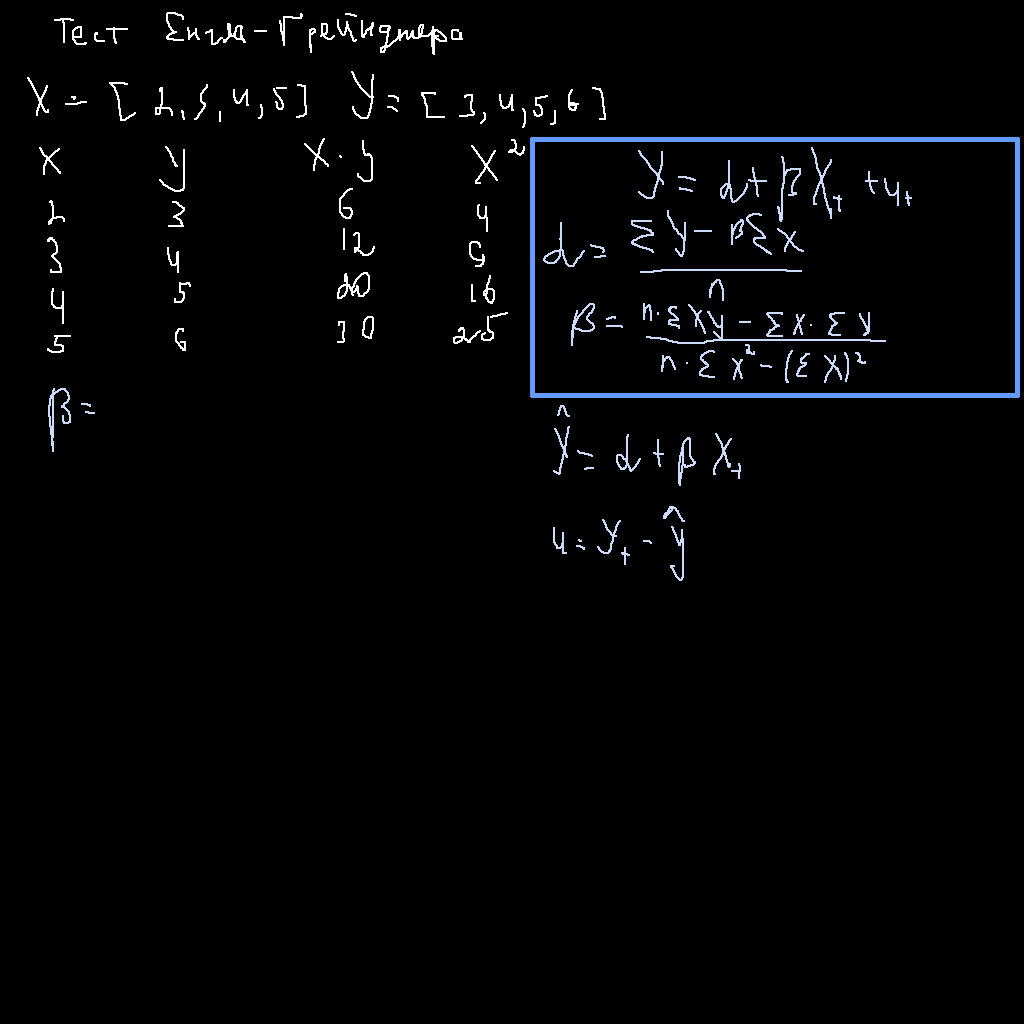 Тест Енгла-Грейнджера
X = [2, 3, 4, 5] Y = [3, 4, 5, 6]
X y X·y X²
2 3 6 4
3 4 12 9
4 5 20 16
5 6 30 25
β =
Y = α + βXₜ + uₜ
α = (Σy - βΣx) / n
β = (n·Σxy - Σx·Σy) / (n·Σx² - (Σx)²)
Ŷ = α + βXₜ
u = Yₜ - ŷ